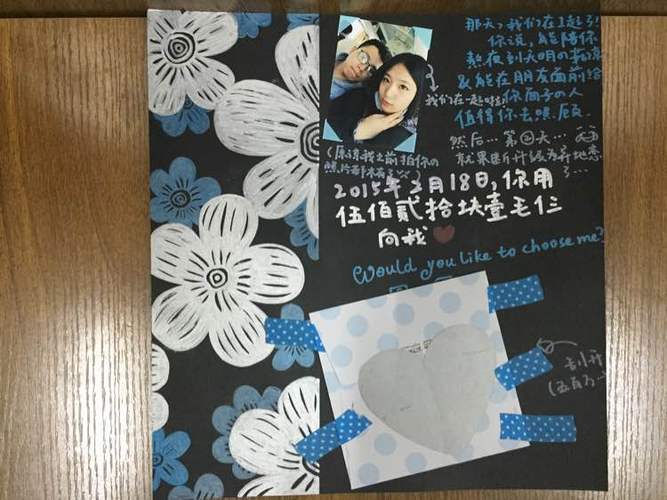 那天，我们在一起了！
你说，能陪你
熬夜到天明的
&能在朋友面前给
你面子的人
值得你去照顾
我们在一起啦
然后…第四天…
就果断升级为异地恋
了…
(原谅我之前拍你的
照片都木有了
2015年2月18日,你用
伍佰贰拾块壹毛仨
向我
Would you like to choose me?
刮开